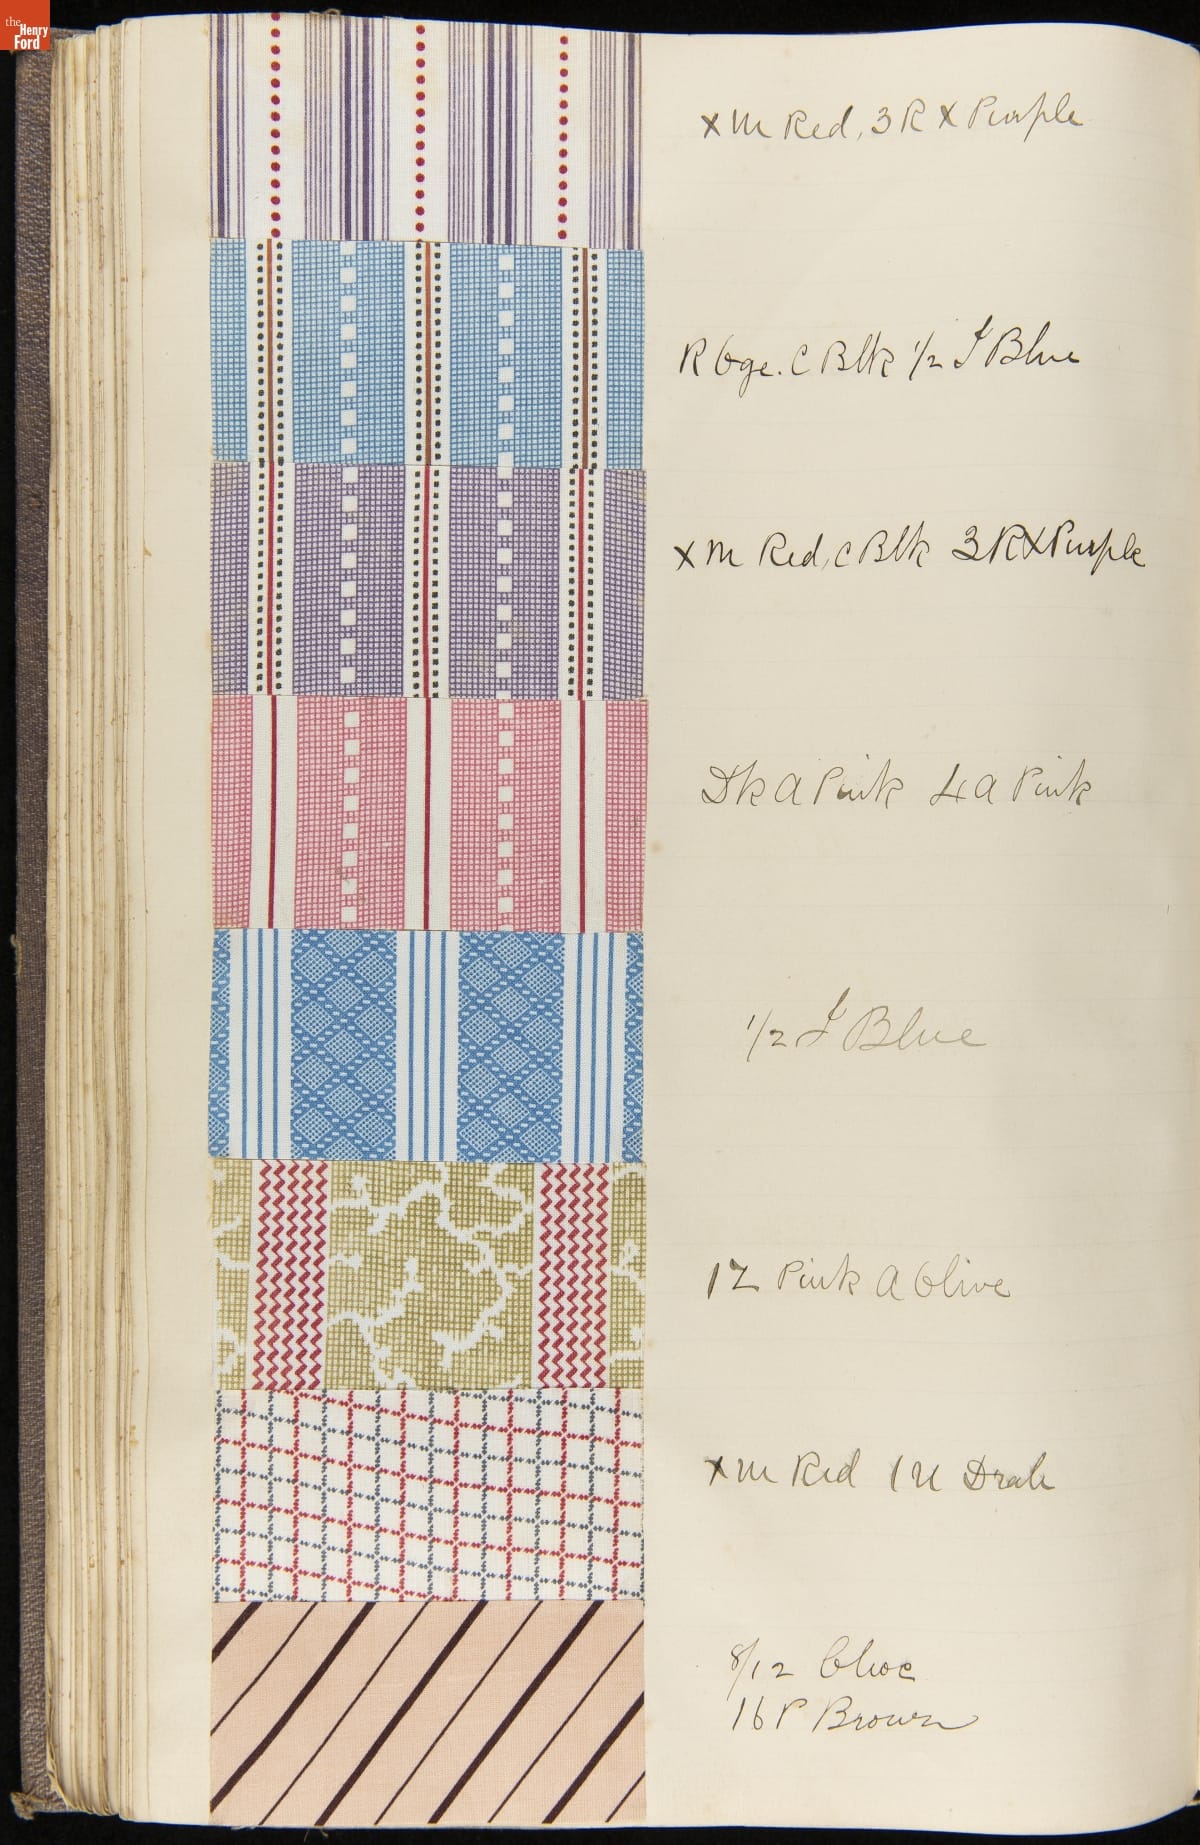 the Henry Ford
x M Red, 3 R x Purple
R Oge. C Blk 1/2 I Blue
x M Red, C Blk 3 R x Purple
Dk A Pink 4 A Pink
1/2 I Blue
12 Pink A Olive
x M Red 1 U Drab
8/12 Choc
16 P Brown